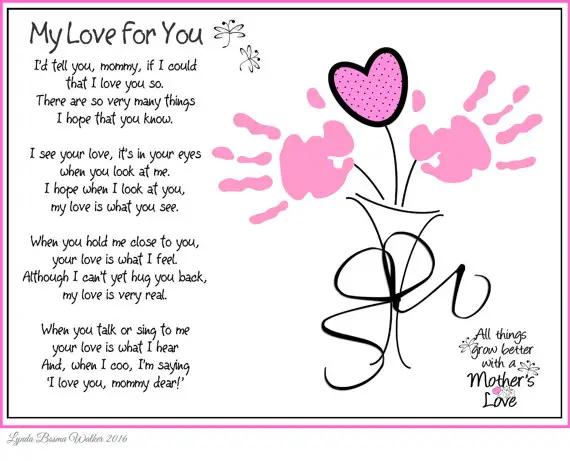 My Love For You
I'd tell you, mommy, if I could
that I love you so.
There are so very many things
I hope that you know.
I see your love, it's in your eyes
when you look at me.
I hope when I look at you,
my love is what you see.
When you hold me close to you,
your love is what I feel.
Although I can't yet hug you back,
my love is very real.
When you talk or sing to me
your love is what I hear
And, when I coo, I'm saying
'I love you, mommy dear!'
All things
grow better
with a
Mother's
Love
Lynda Bosma Walker 2016